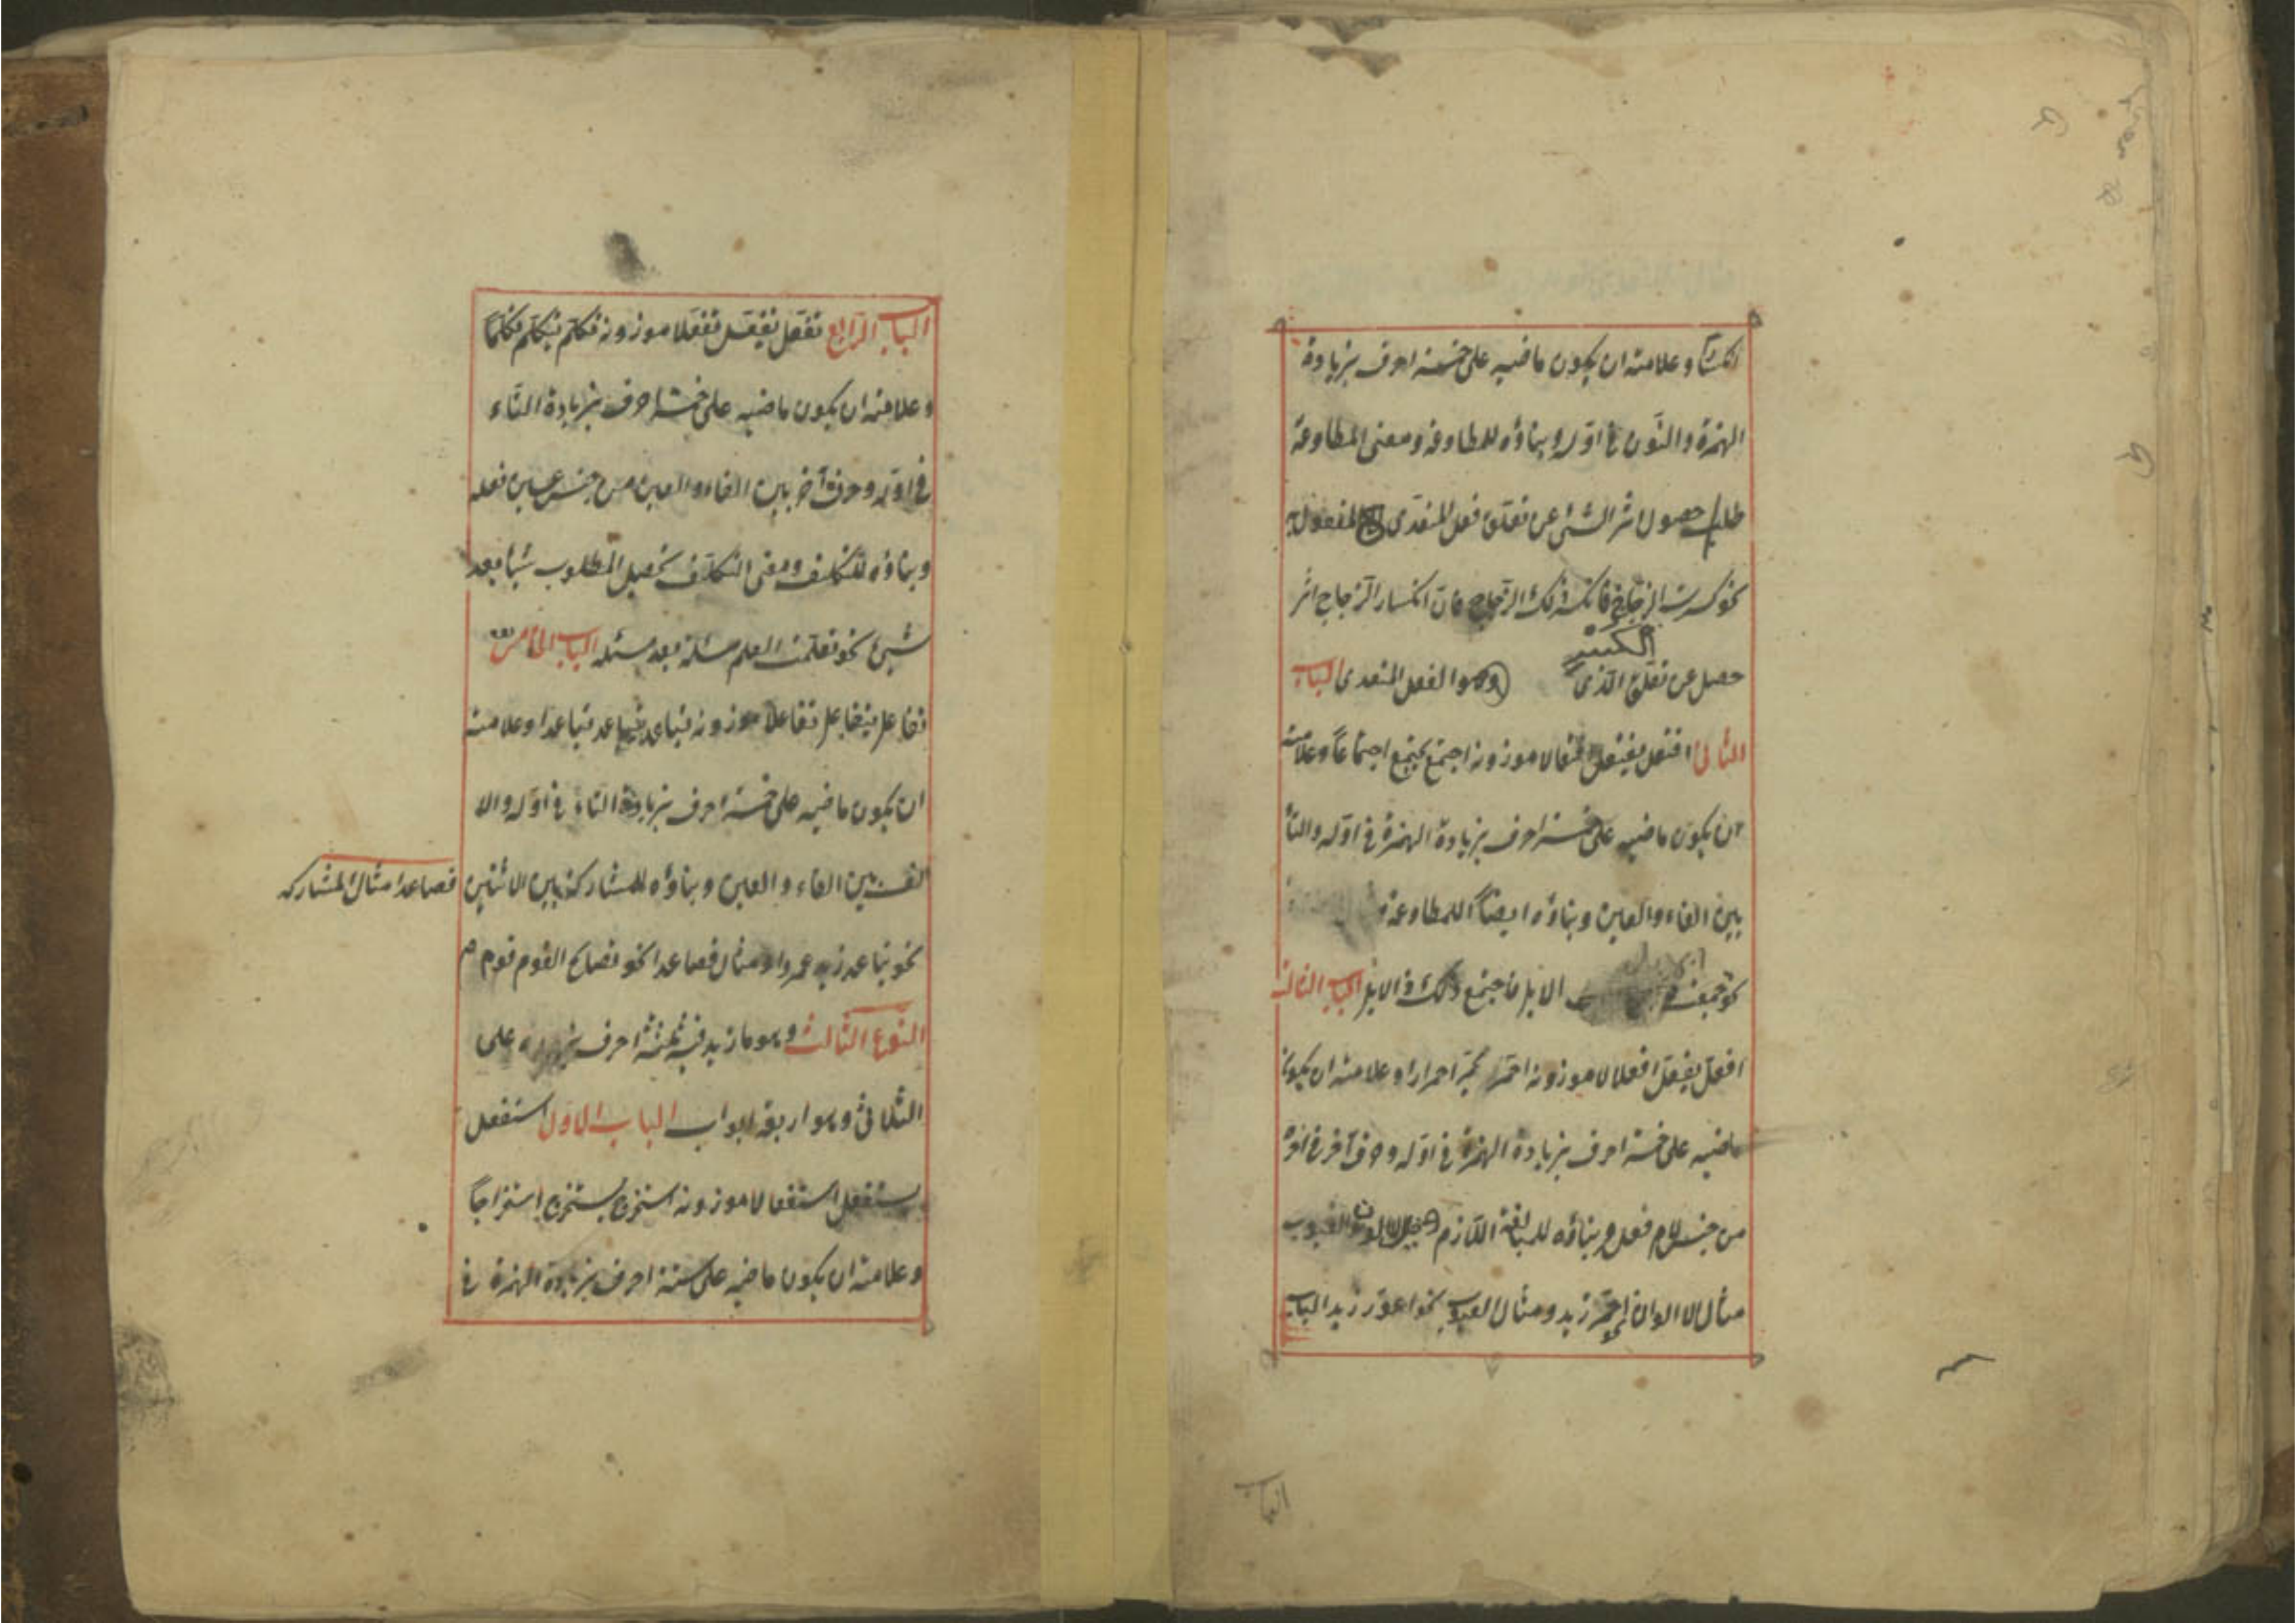 انكسارا وعلامته ان يكون ماضيه على خمسة احرف بزيادة
الهمزة والنّون في اوّله وبناؤه للمطاوعة ومعنى المطاوعة
طلب حصول اثر الشئ عن تعلّق فعل المتعدى المفعول
نحو كسرت الزجاج فانكسر ذلك الزّجاج فانّ انكسار الزّجاج اثر
الكسر
حصل عن تعلّق الّذى وهو الفعل المتعدى الباب
الثانى افتعل يفتعل افتعالا موزونه اجتمع يجتمع اجتماعاً وعلامته
ان يكون ماضيه على خمسة احرف بزيادة الهمزة في اوّله والتاء
بين الفاء والعين وبناؤه ايضاً للمطاوعة
نحو جمعت الابل فاجتمع ذلك الابل الباب الثالث
افعلّ يفعلّ افعلالا موزونه احمرّ يحمرّ احمرارا وعلامته ان يكون
ماضيه على خمسة احرف بزيادة الهمزة في اوّله وحرف آخر في آخره
من جنس لام فعله وبناؤه للمبالغة اللّازم الالوان والعيوب
مثال الالوان نحو احمرّ زيد ومثال العيوب نحو اعورّ زيد الباب
الباب
الباب الرّابع تفعّل يتفعّل تفعّلا موزونه تكلّم يتكلّم تكلّماً
وعلامته ان يكون ماضيه على خمسة احرف بزيادة التّاء
في اوّله وحرف آخر بين الفاء والعين من جنس عين فعله
وبناؤه للتكلّف ومعنى التكلّف تحصيل المطلوب شيئا بعد
شيئ نحو تعلّمت العلم مسئلة بعد مسئلة الباب الخامس
تفاعل يتفاعل تفاعلا موزونه تباعد يتباعد تباعدا وعلامته
ان يكون ماضيه على خمسة احرف بزيادة التاء في اوّله والا
لف بين الفاء والعين وبناؤه للمشاركة بين الاثنين
فصاعدا مثال المشاركه
نحو تباعد زيد عمروا ومثال فصاعدا نحو تصالح القوم قوم
النّوع الثّالث وهو ما زيد فيه ثلثة احرف على
الثلاثى وهو اربعة ابواب الباب الاوّل استفعل
يستفعل استفعالا موزونه استخرج يستخرج استخراجاً
وعلامته ان يكون ماضيه على ستة احرف بزيادة الهمزة في